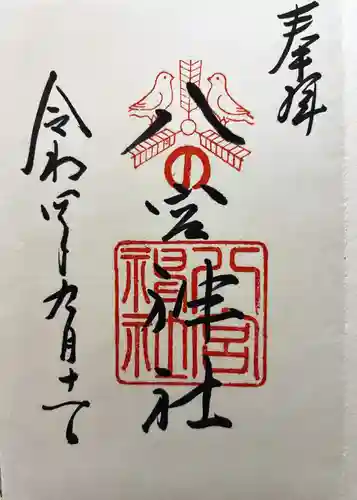 奉拝
八の宮神社
八宮
神社
令和四年九月十一日